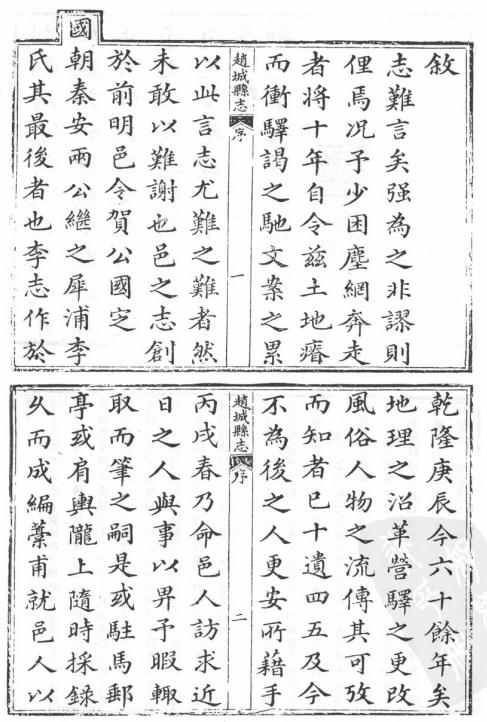 敘
志難言矣强為之非謬則
俚焉况予少困塵網奔走
者将十年自令兹土地瘠
而衝驛謁之馳文案之累
趙城縣志 序 一
以此言志尤難之難者然
未敢以難謝也邑之志創
於前明邑令賀公國定
國朝秦安兩公繼之犀浦李
氏其最後者也李志作於
乾隆庚辰今六十餘年矣
地理之沿革營驛之更改
風俗人物之流傳其可攷
而知者已十遺四五及今
不為後之人更安所藉手
趙城縣志 序 二
丙戌春乃命邑人訪求近
日之人與事以畀予暇輙
取而筆之嗣是或駐馬郵
亭或肩輿隴上隨時採錄
乆而成編藳甫就邑人以